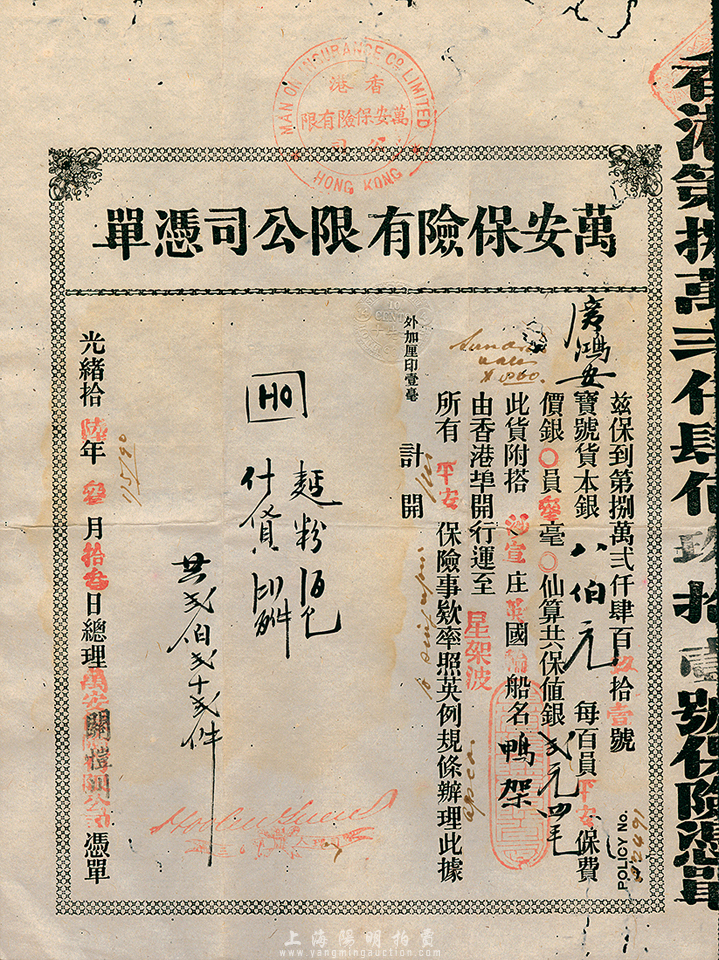 MAN ON INSURANCE CO LIMITED
香港
萬安保險有限
公司
HONG KONG
萬安保險有限公司憑單
香港第捌萬弍仟肆佰玖拾壹號保險憑單
POLICY No.
82491
茲保到第捌萬弍仟肆百玖拾壹號
廣鴻安寶號貨本銀八伯元每百員平安保費
價銀〇員叄毫〇仙算共保值銀弍元四毛
此貨附搭 庄英國輪船名鴨架
由香港埠開行運至星架波
所有平安保險事欵率照英例規條辦理此據
計開
外加厘印壹毫
10
CENTS
HO
麵粉 佰包
什貨 件
共弍佰弍十弍件
光緒拾陸年叄月拾叄日總理萬安保險有限公司關愷川憑單
11/5/90
上海陽明拍賣
www.yangmingauction.com